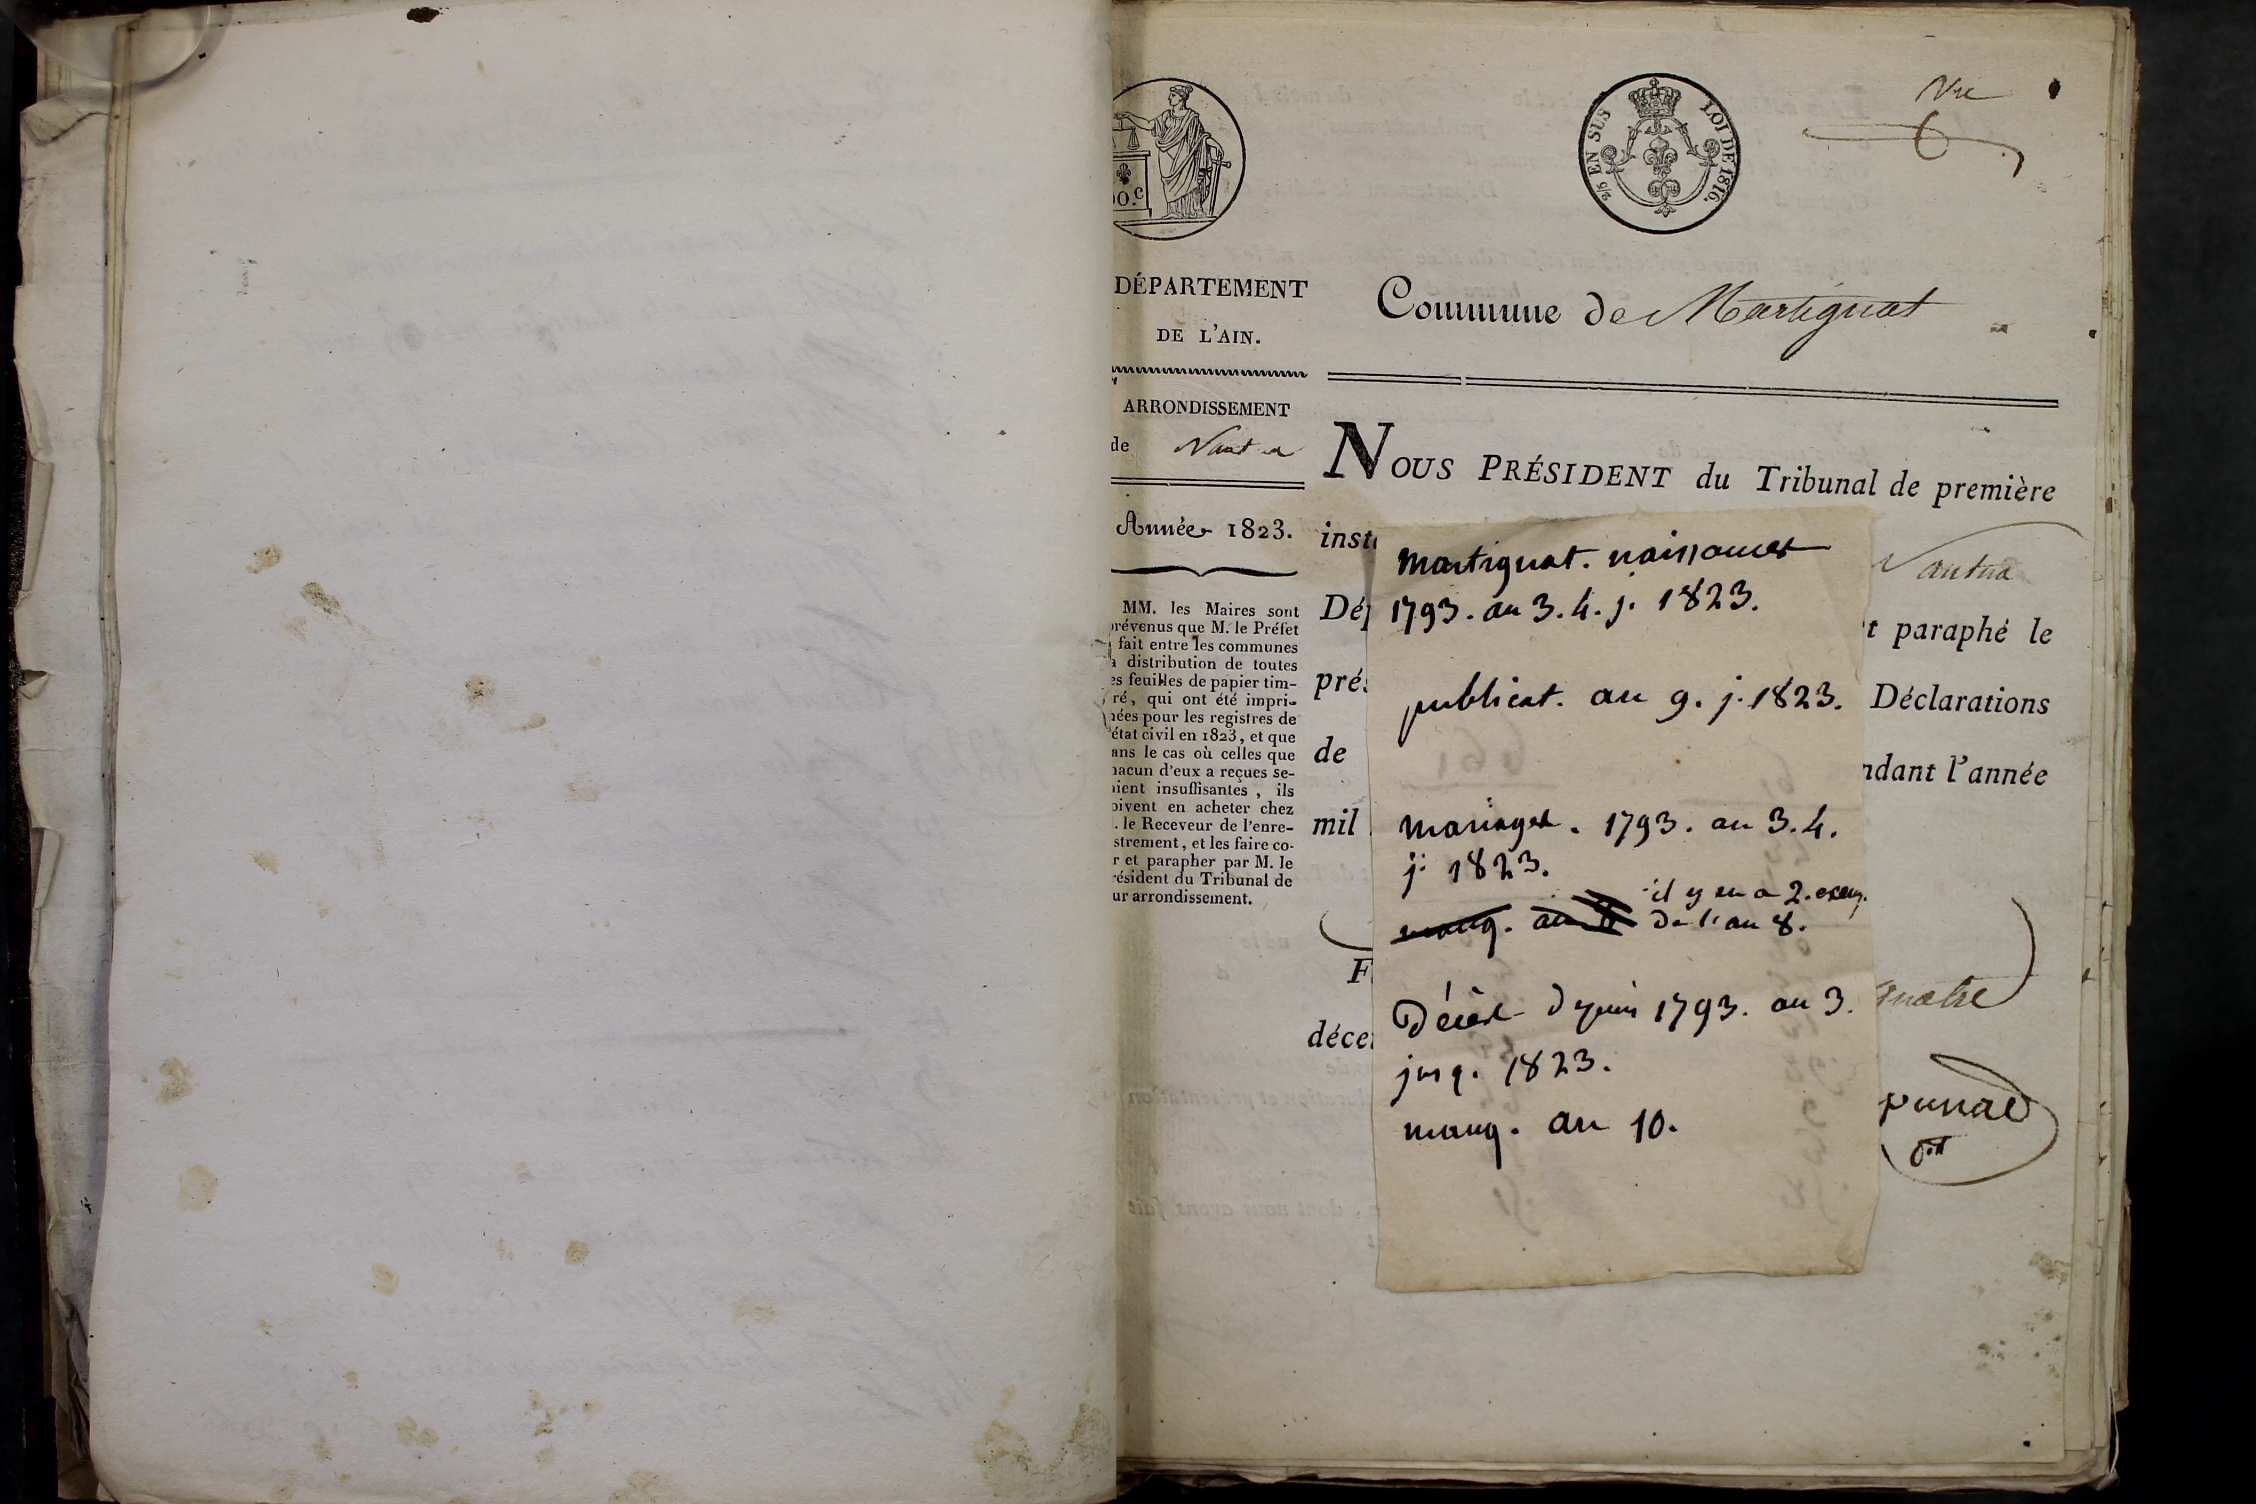 2/5 EN SUS LOI DE 1816.
Vu
00.C
DÉPARTEMENT
DE L'AIN.
ARRONDISSEMENT
de Nantua
Année 1823.
MM. les Maires sont
prévenus que M. le Préfet
fait entre les communes
a distribution de toutes
es feuilles de papier tim-
ré, qui ont été impri-
mées pour les registres de
l'état civil en 1823, et que
ans le cas où celles que
hacun d'eux a reçues se-
aient insuffisantes, ils
oivent en acheter chez
. le Receveur de l'enre-
strement, et les faire co-
r et parapher par M. le
résident du Tribunal de
ur arrondissement.
Commune de Martignat
NOUS PRÉSIDENT du Tribunal de première
inst
Nantua
Dép
t paraphé le
prés
Déclarations
de
ndant l'année
mil
F
quatre
décem
martignat. naissances
1793. au 3. 4. j. 1823.
publicat. an 9. j. 1823.
mariages. 1793. an 3. 4.
j. 1823.
manq. an 8 il y en a 2. exem.
de l'an 8.
Décès depuis 1793. an 3.
jusq. 1823.
manq. an 10.